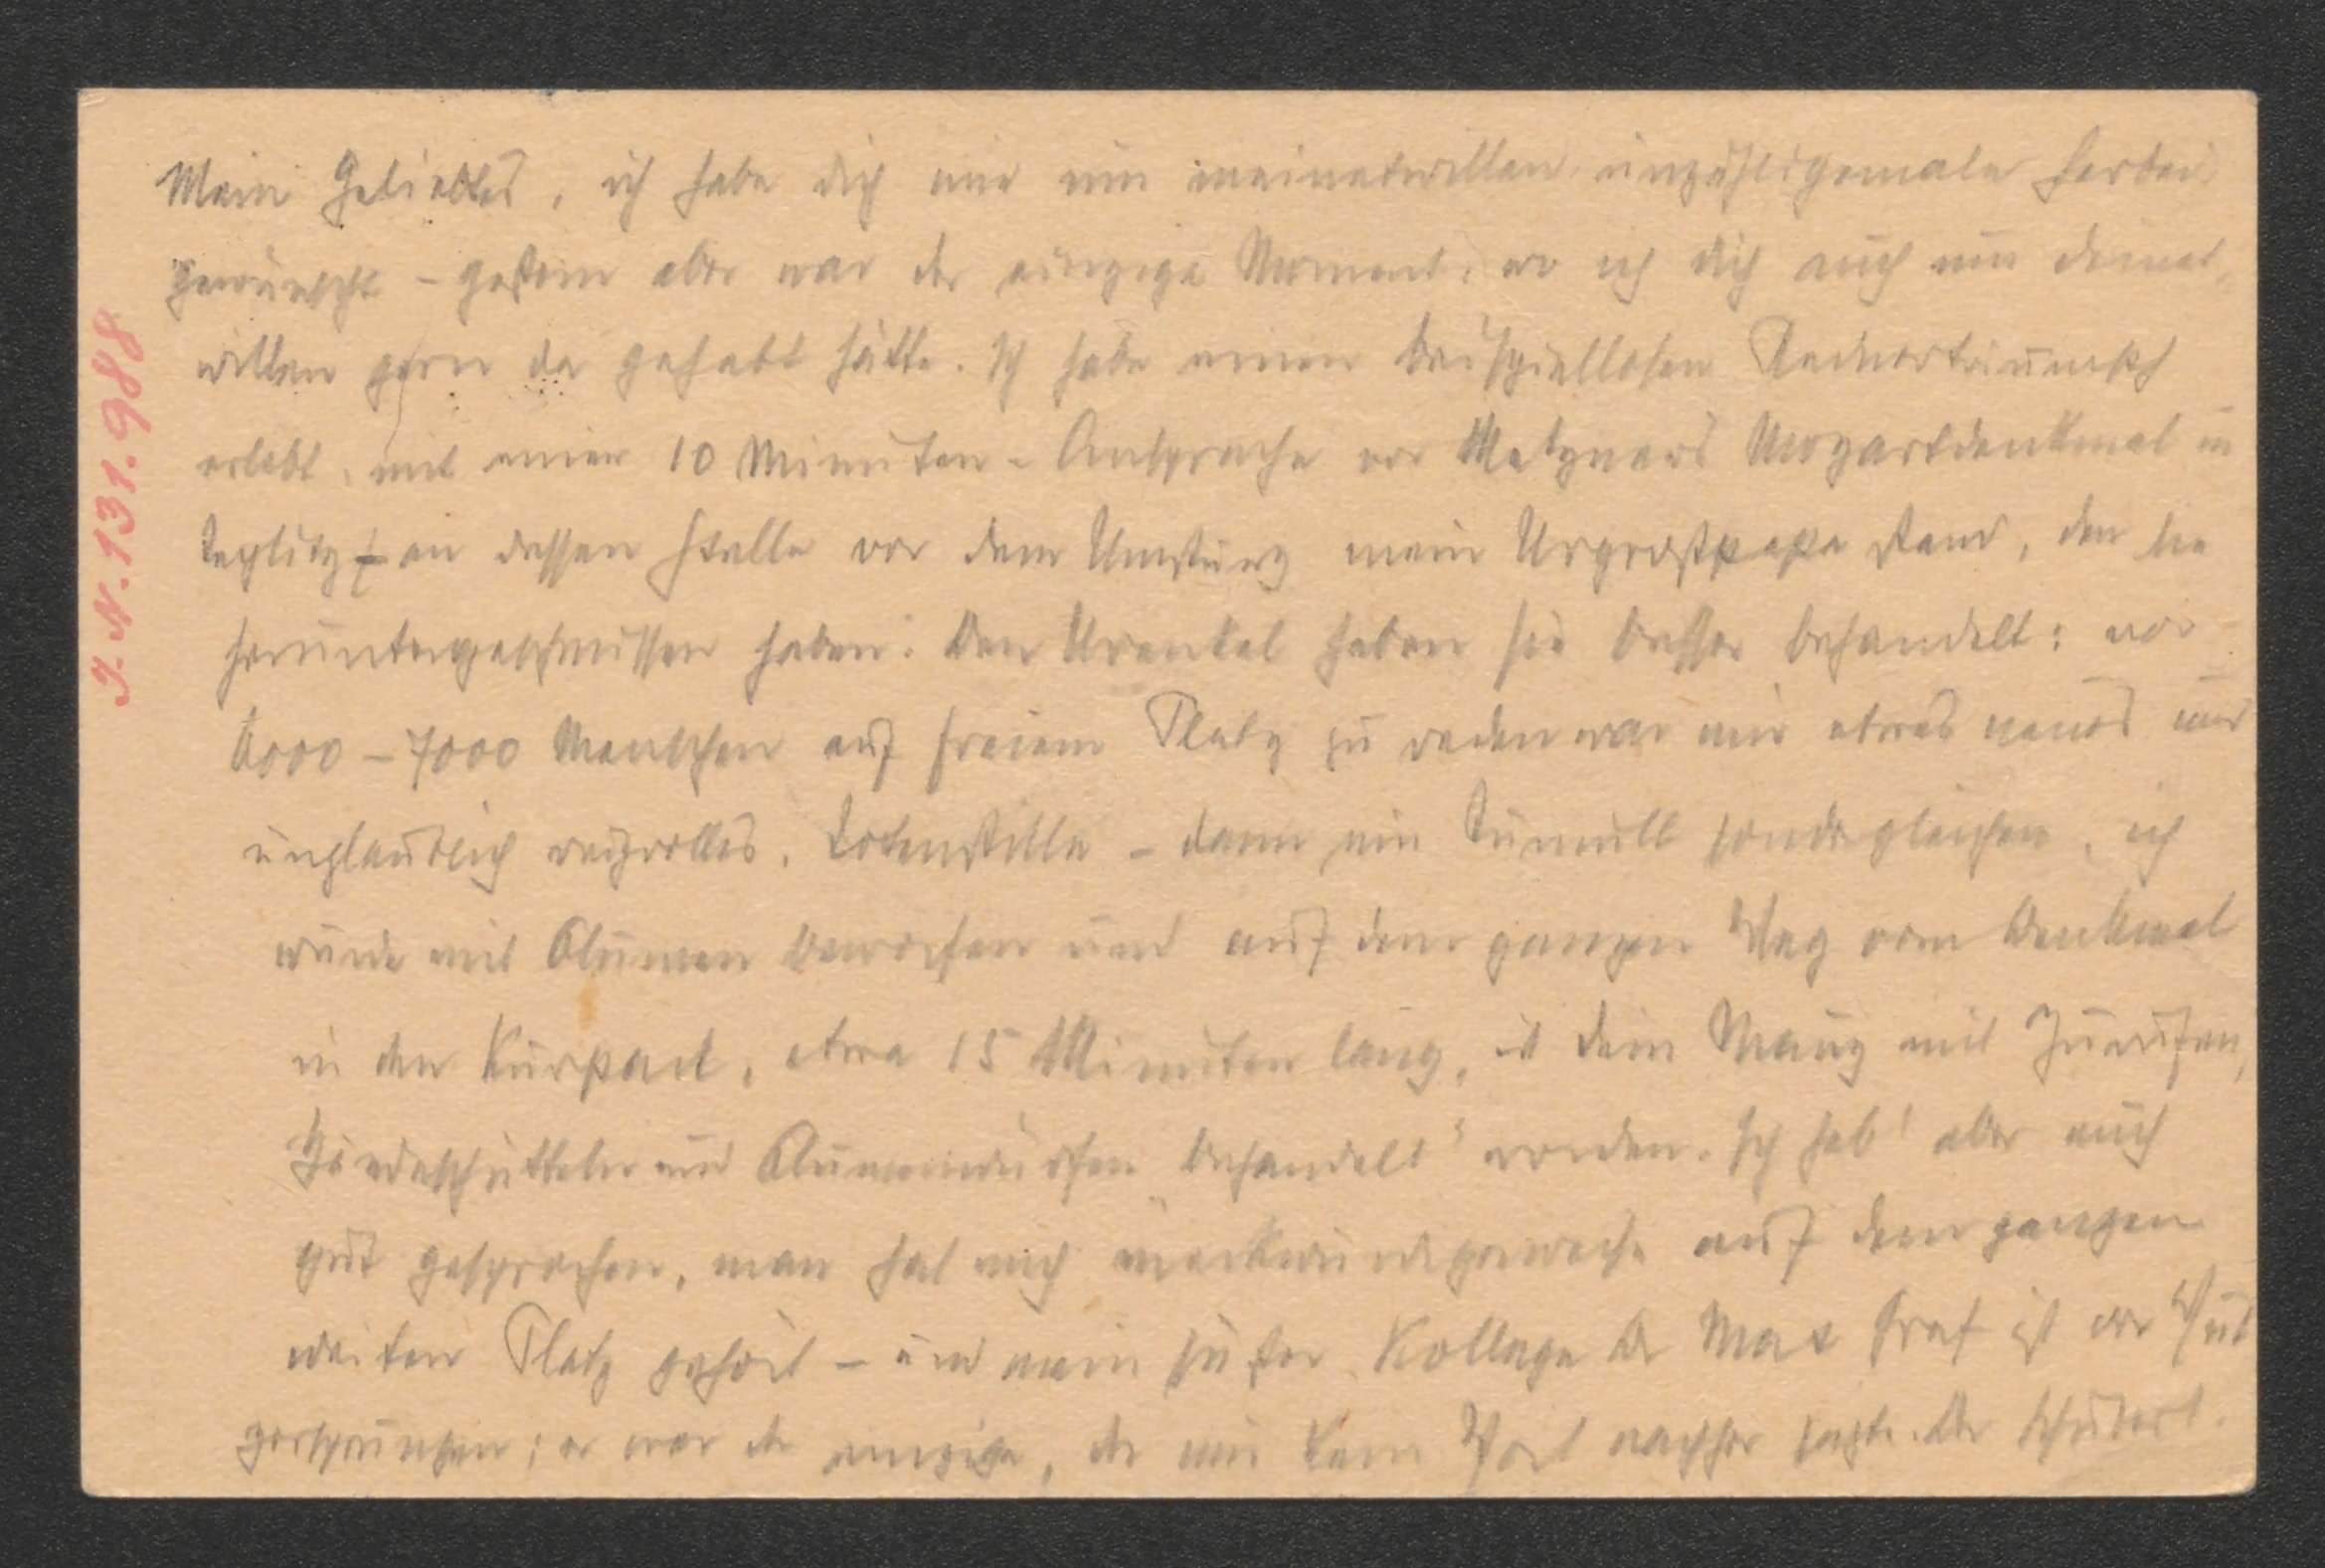 Mein Geliebtes, ich habe dich nur um meinetwillen unzähligemale herbei-
gewünscht – gestern aber war der einzige Moment, wo ich dich auch um deinet-
willen gern da gehabt hätte. Ich habe einen beispiellosen Rednertriumph
erlebt, mit einer 10 Minuten-Ansprache vor Metzners Mozartdenkmal in
Teplitz – an dessen Stelle vor dem Umsturz mein Urgrosspapa stand, den sie
heruntergeschmissen haben. Den Urenkel haben sie besser behandelt: vor
6000 – 7000 Menschen auf freiem Platz zu reden war mir etwas neues und
unglaublich reizvolles. Totenstille – dann ein Tumult sondergleichen, ich
wurde mit Blumen beworfen und auf dem ganzen Weg vom Denkmal
in den Kurpark, etwa 15 Minuten lang, ist dein mit Zurufen,
Händeschütteln und Blumenwürfen „behandelt" worden. Ich hab' aber auch
gut gesprochen, man hat mich merkwürdigerweise auf dem ganzen
weiten Platz gehört – und mein Kollege Dr Max Graf ist vor Wut
zersprungen; er war der einzige, der mir kein Wort nachher sagte. Der
I. N. 131.988